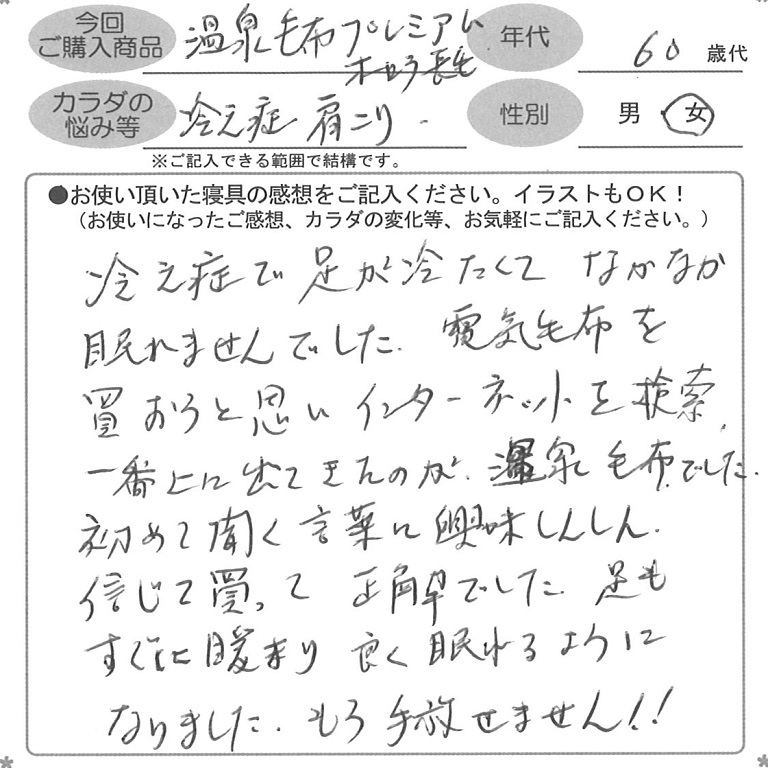 今回
ご購入商品
温泉毛布プレミアム
年代
60 歳代
カラダの
悩み等
冷え症 肩こり
性別
男 女
※ご記入できる範囲で結構です。
●お使い頂いた寝具の感想をご記入ください。イラストもOK！
（お使いになったご感想、カラダの変化等、お気軽にご記入ください。）
冷え症で足が冷たくて なかなか
眠れませんでした. 電気毛布を
買おうと思いインターネットを検索.
一番上に出てきたのが. 温泉毛布でした.
初めて聞く言葉に興味しんしん.
信じて買って 正解でした. 足も
すぐに暖まり 良く眠れるように
なりました. もう手放せません!!